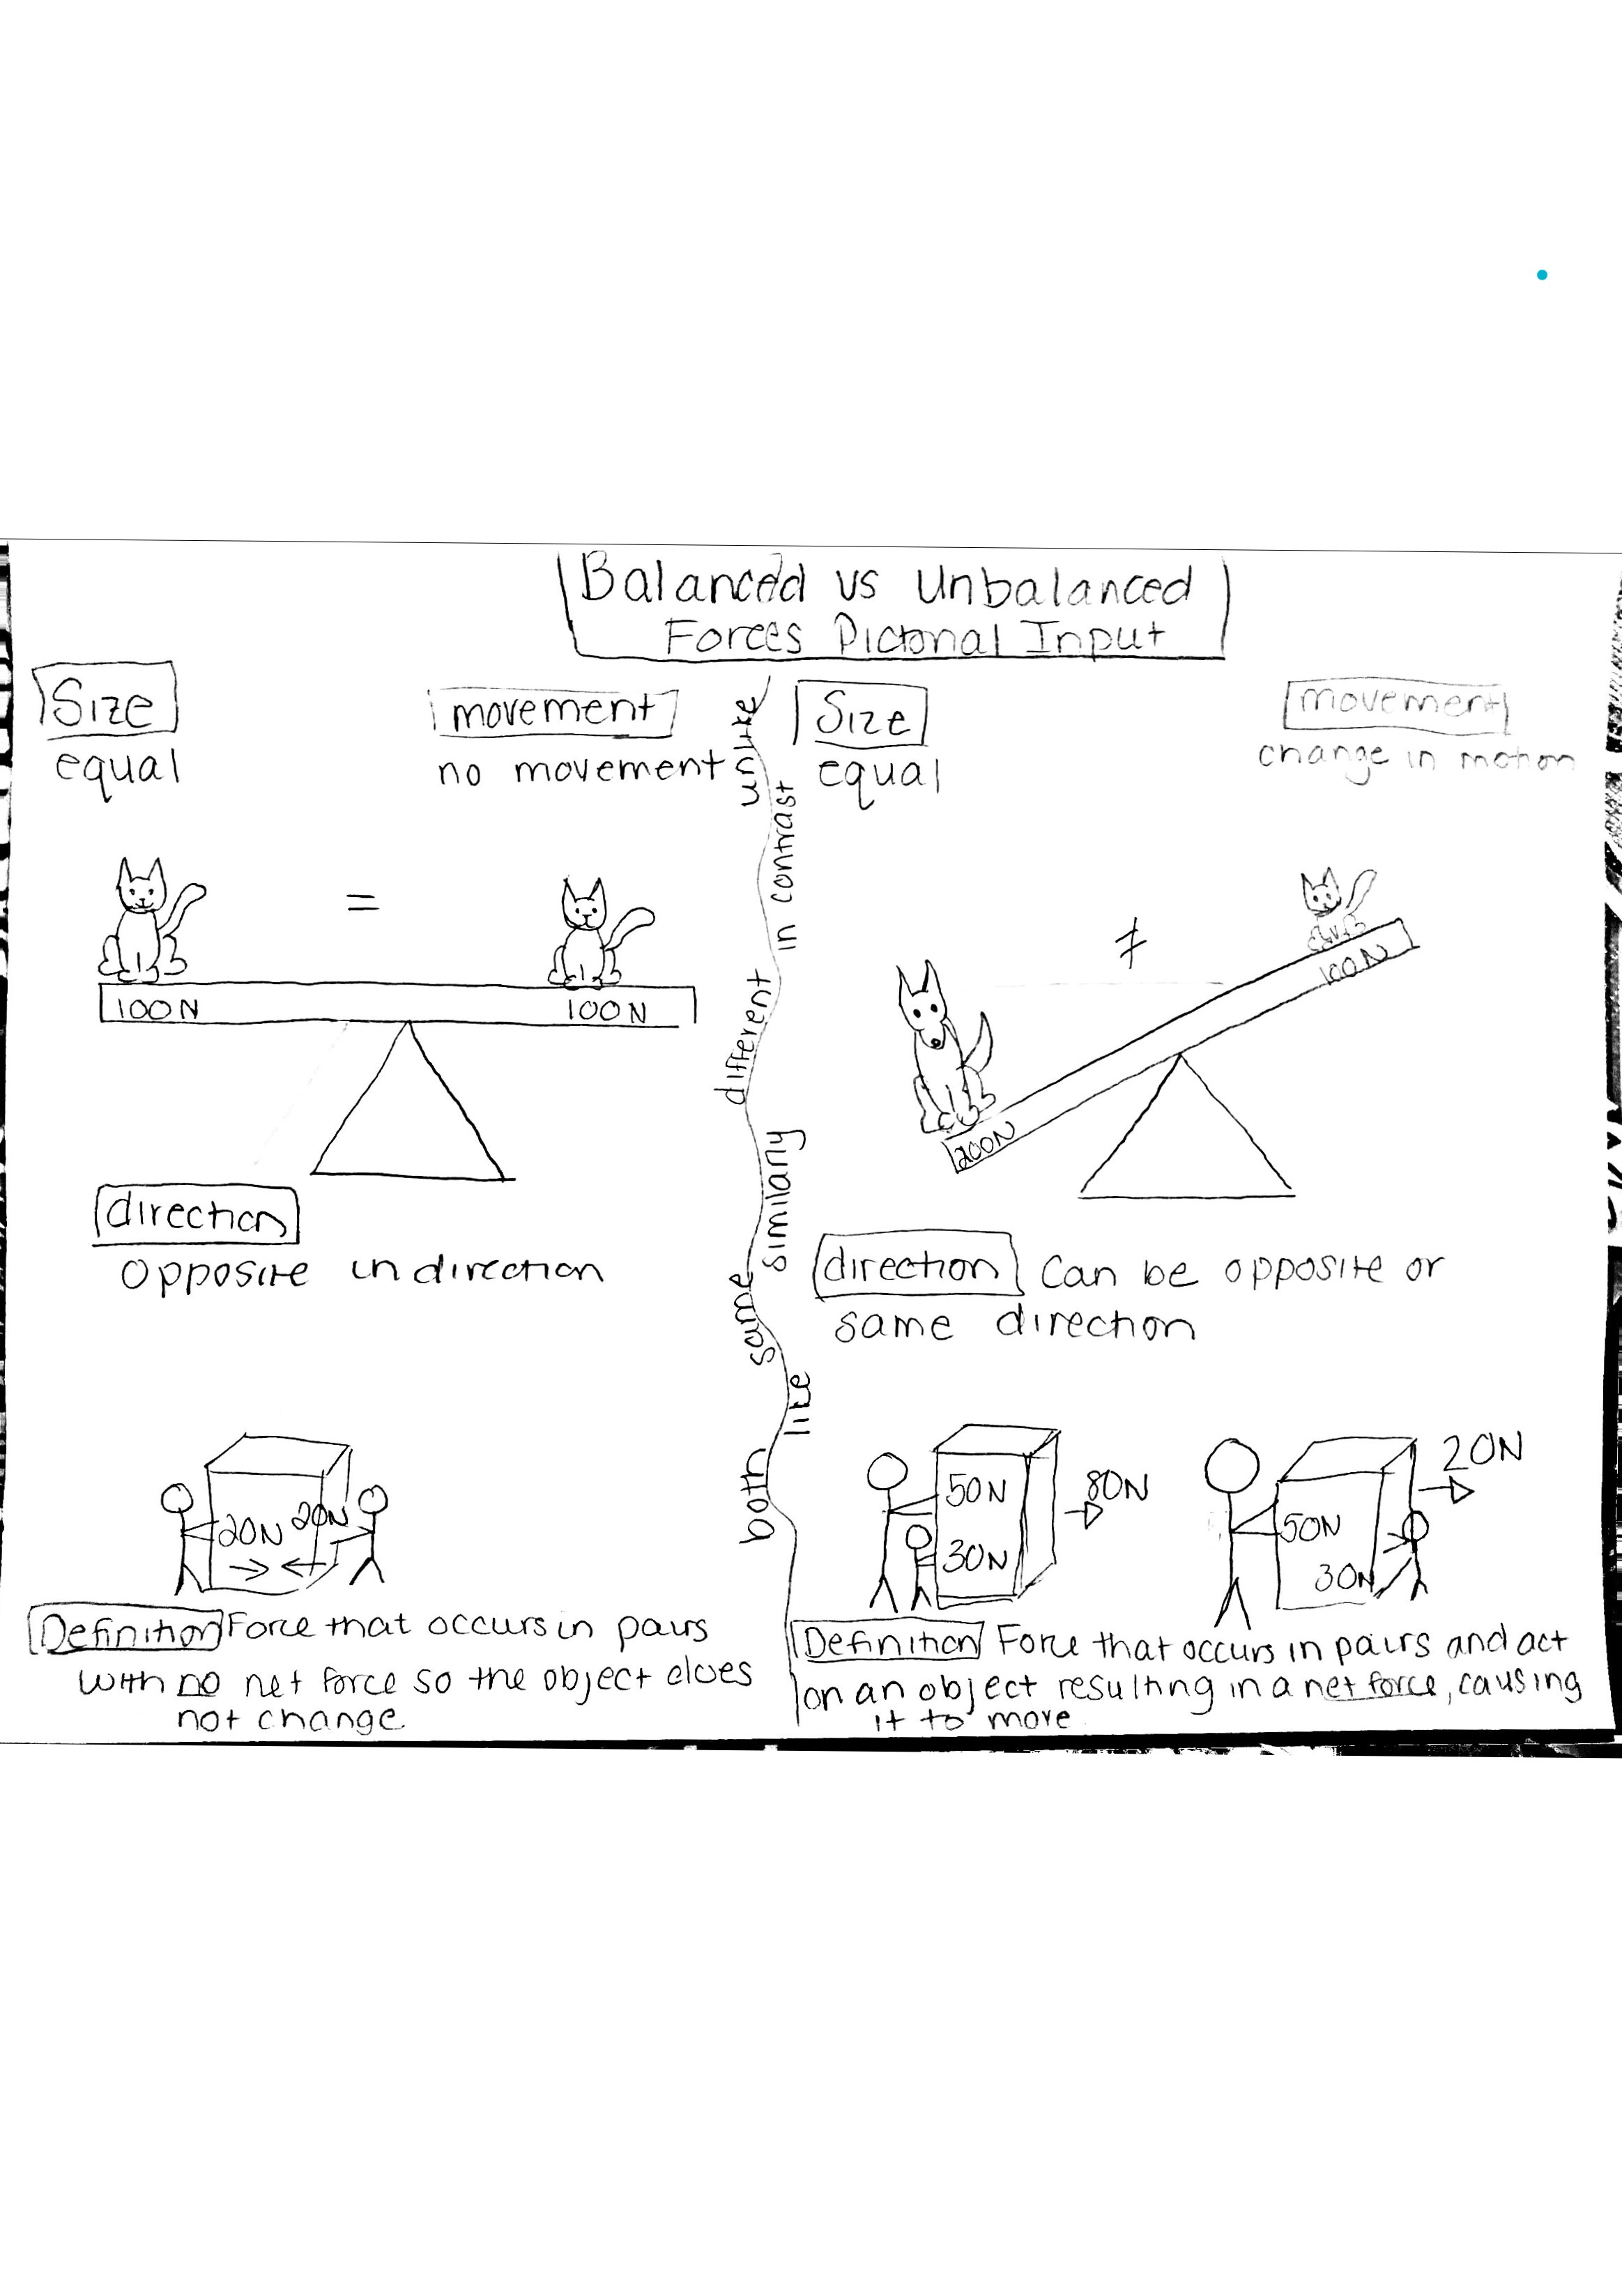 Balanced vs Unbalanced
Forces Pictorial Input
Size
equal
movement
no movement
=
100N
100N
direction
opposite in direction
20N
20N
Definition Force that occurs in pairs
with no net force so the object does
not change
unlike
in contrast
different
similarly
same
like
both
Size
equal
movement
change in motion
≠
100N
200N
direction can be opposite or
same direction
50N
30N
80N
50N
30N
20N
Definition Force that occurs in pairs and act
on an object resulting in a net force, causing
it to move